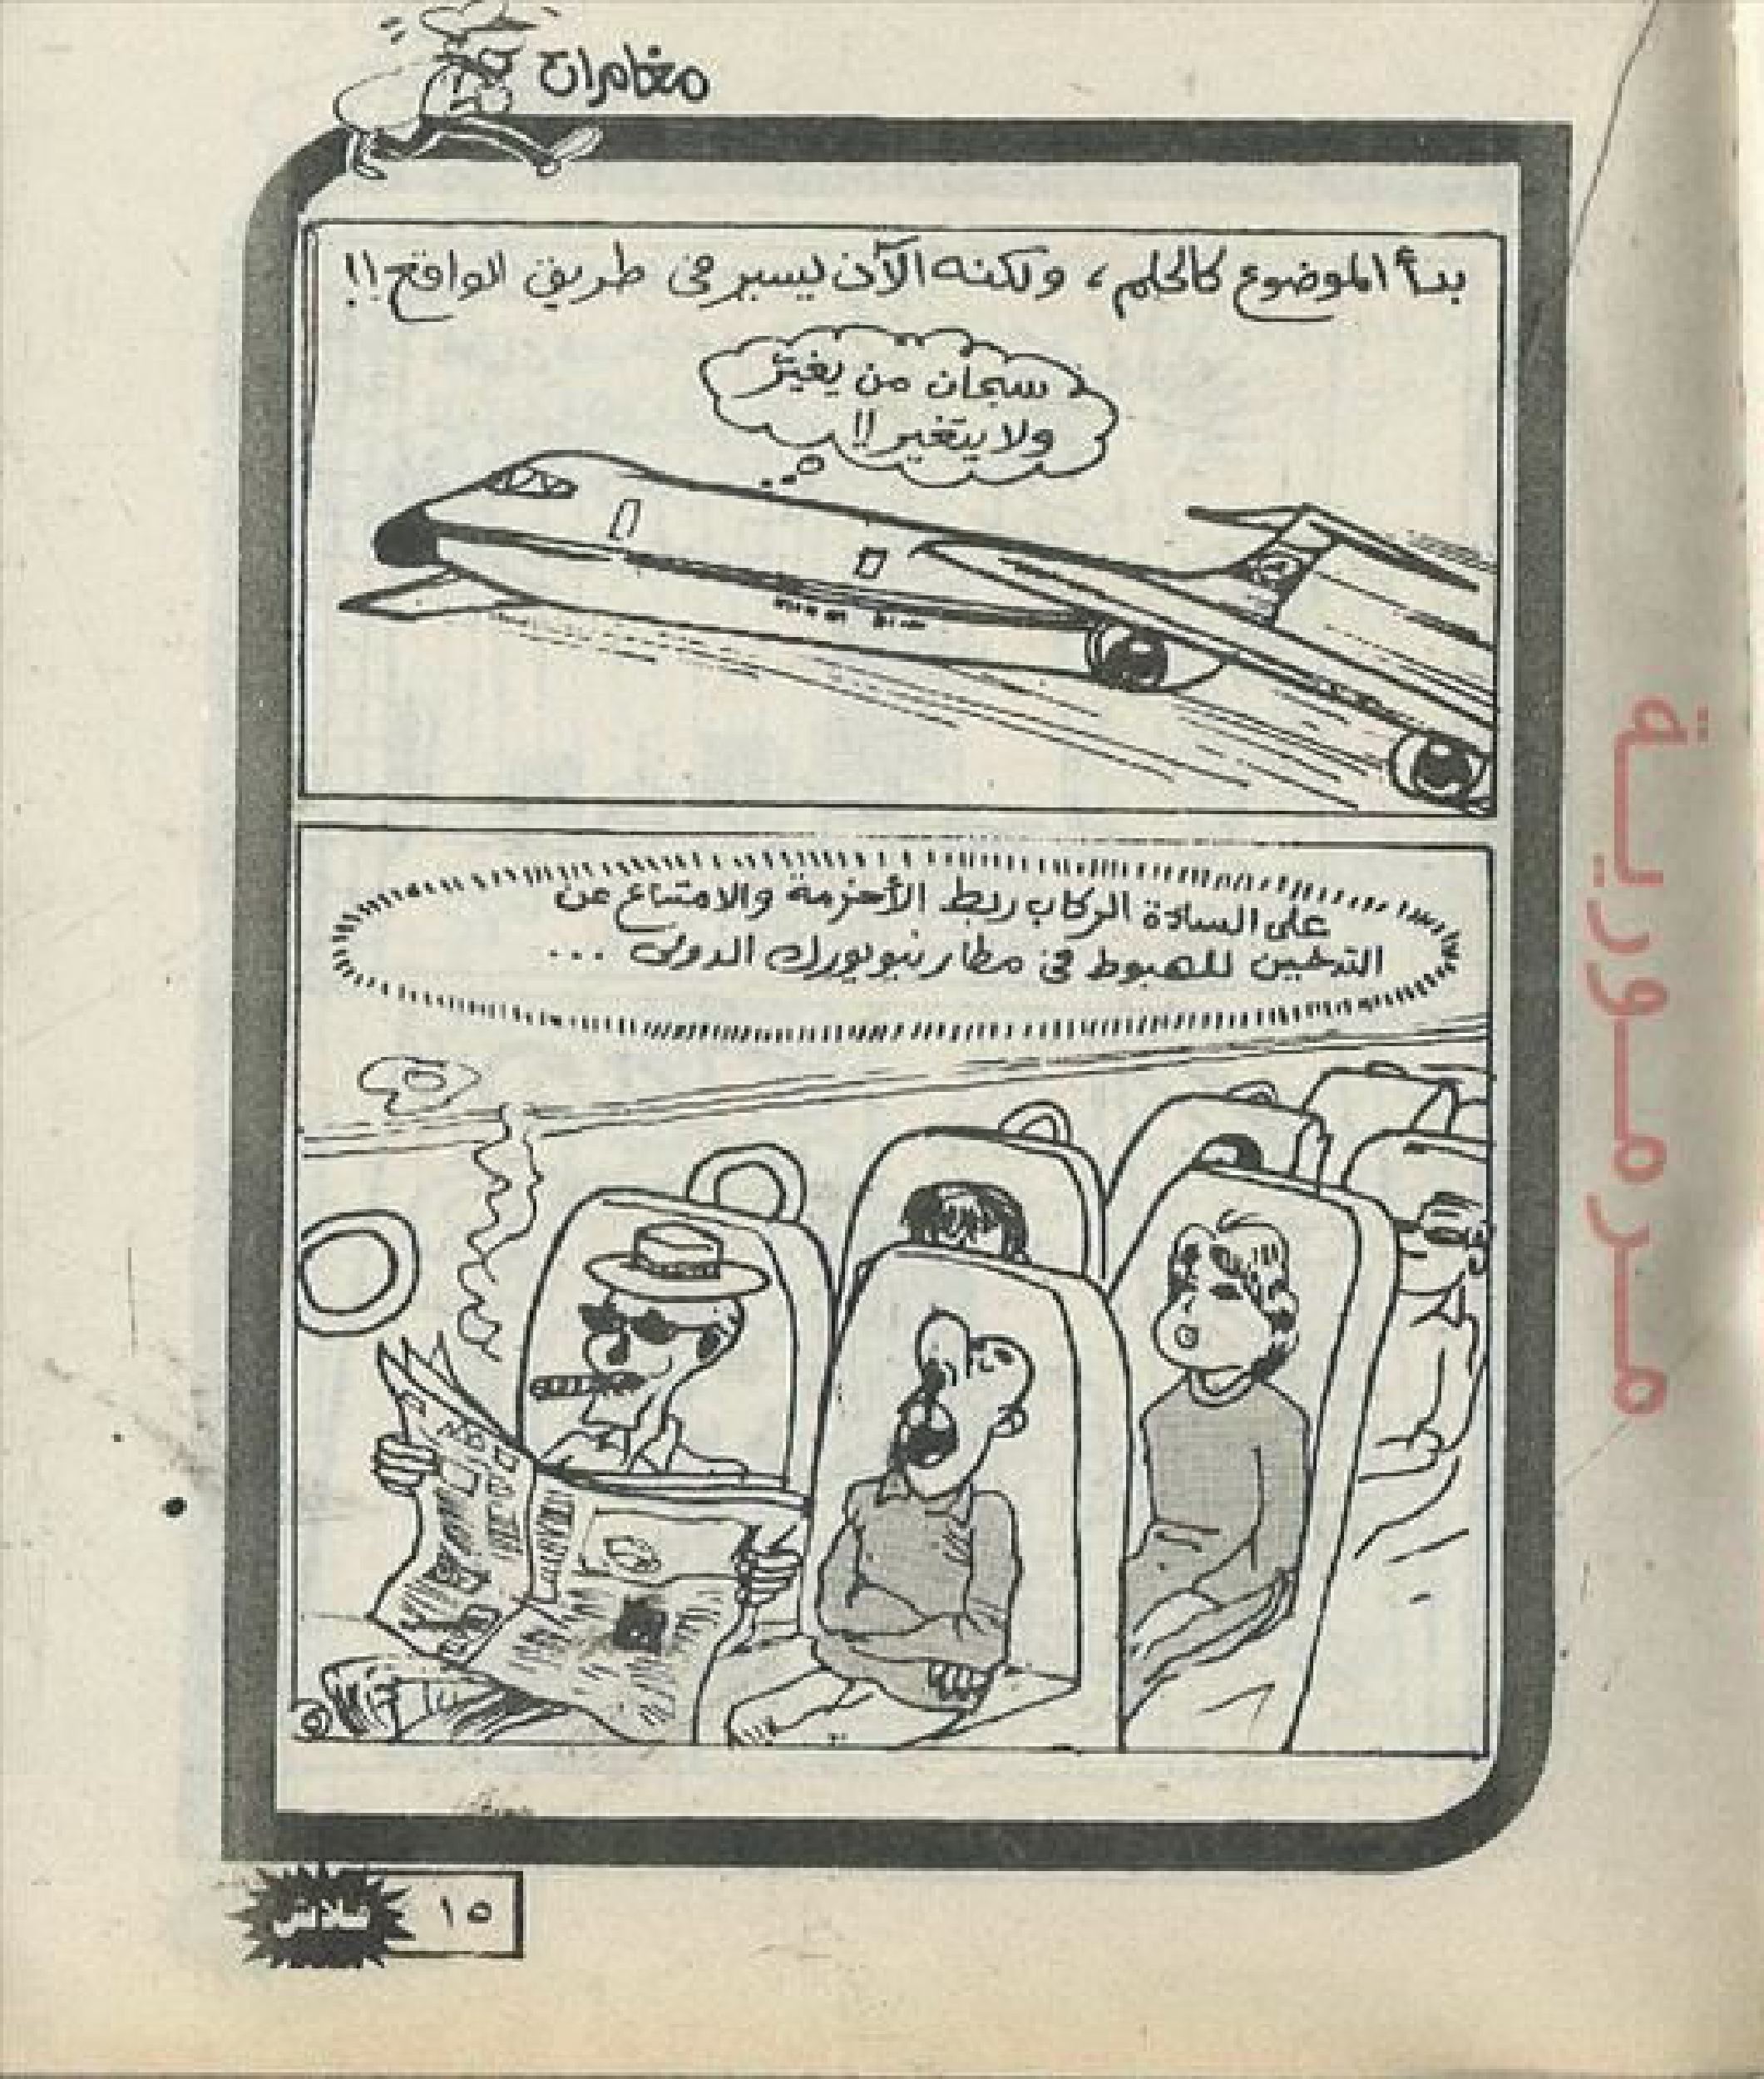 مغامرات
بدأ الموضوع كالحلم، ولكنه الآن يسير فى طريق الواقع!!
سبحان من يغير
ولا يتغير!!
على السادة الركاب ربط الأحزمة والامتناع عن
التدخين للهبوط فى مطار نيويورك الدولى ...
١٥
فلاش
مرمورية